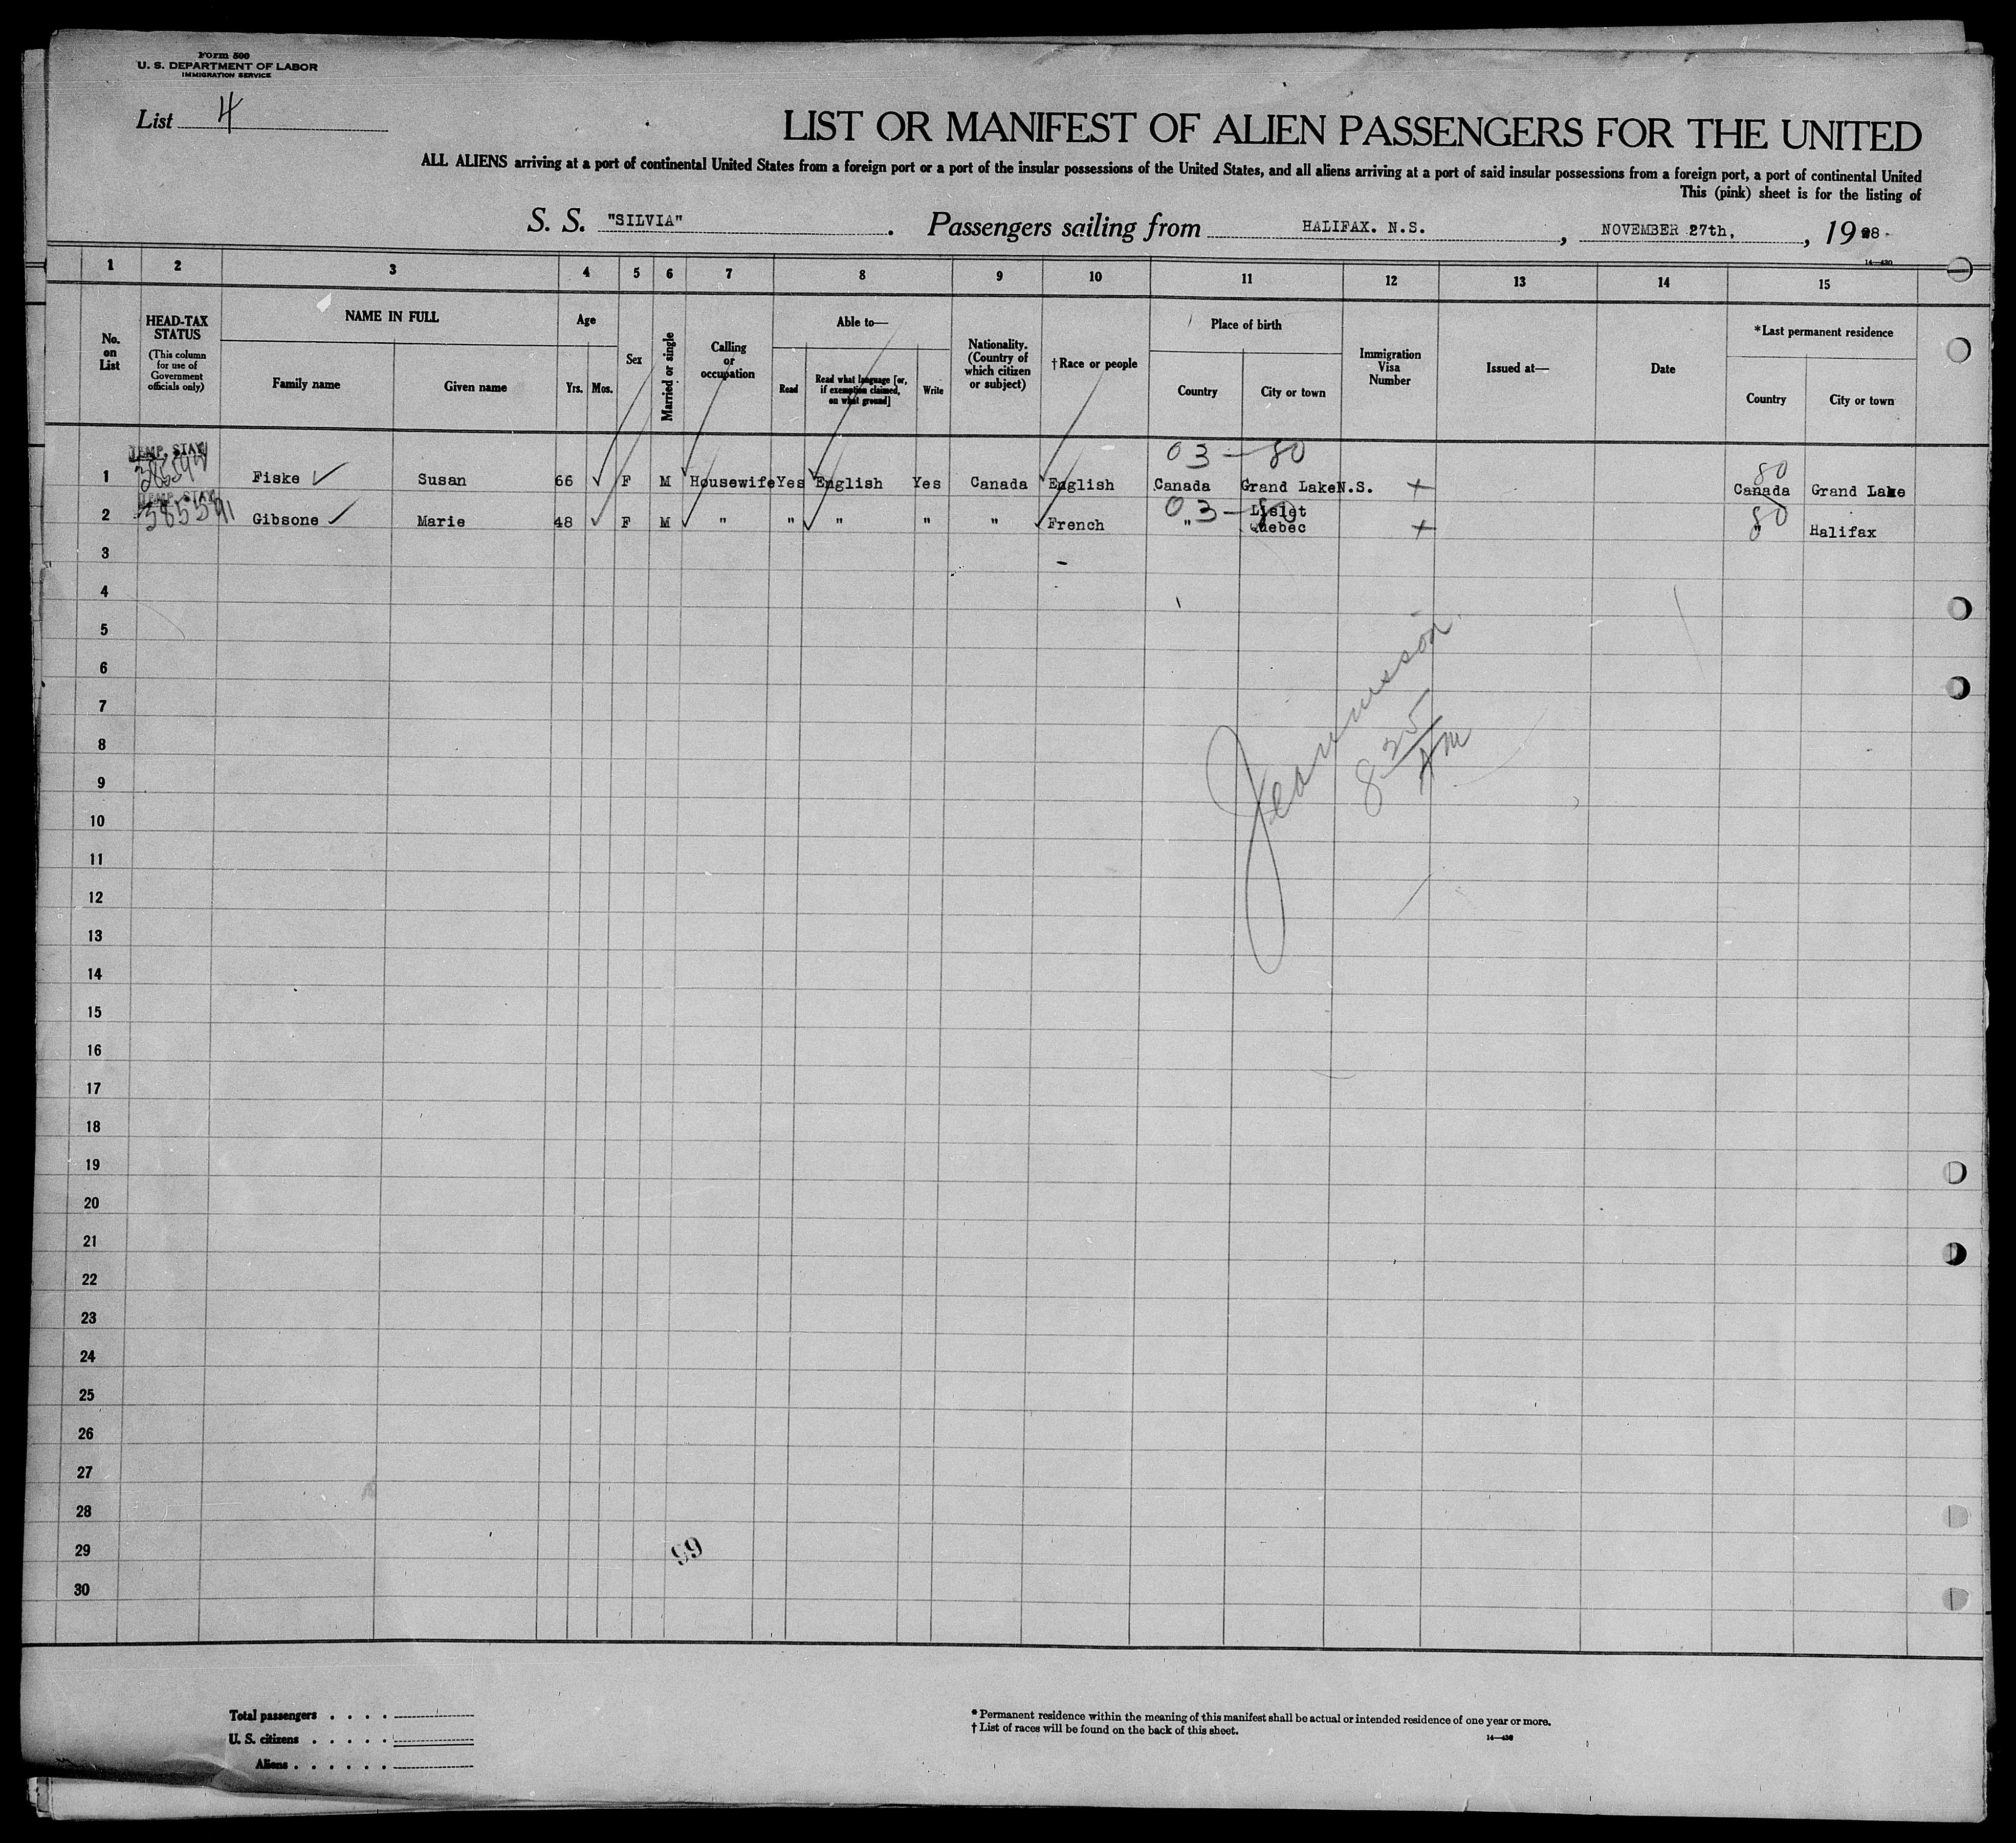 Form 500
U. S. DEPARTMENT OF LABOR
IMMIGRATION SERVICE
List 4
LIST OR MANIFEST OF ALIEN PASSENGERS FOR THE UNITED
ALL ALIENS arriving at a port of continental United States from a foreign port or a port of the insular possessions of the United States, and all aliens arriving at a port of said insular possessions from a foreign port, a port of continental United
This (pink) sheet is for the listing of
S. S. "SILVIA". Passengers sailing from HALIFAX. N.S., NOVEMBER 27th, , 1928
14—430
1 2 3 4 5 6 7 8 9 10 11 12 13 14 15
No. on List
HEAD-TAX STATUS
(This column for use of Government officials only)
NAME IN FULL
Family name
Given name
Age
Yrs. Mos.
Sex
Married or single
Calling or occupation
Able to—
Read
Read what language [or, if exemption claimed, on what ground]
Write
Nationality. (Country of which citizen or subject)
†Race or people
Place of birth
Country
City or town
Immigration Visa Number
Issued at—
Date
*Last permanent residence
Country
City or town
TEMP. STAY 03 - 80 80
1 Fiske ✓ Susan 66 ✓ F M Housewife Yes English Yes Canada English Canada Grand Lake N.S. + Canada Grand Lake
TEMP. STAY 03 - 80
385591 L'Islet
2 Gibsone ✓ Marie 48 ✓ F M " " " " " French " Quebec + " Halifax
3
4
5
6
7
8
9
10
11
12
13
14
15
16
17
18
19
20
21
22
23
24
25
26
27
28
29
30
8 25 AM
99
Total passengers . . . .
U. S. citizens . . . . .
Aliens . . . . . .
* Permanent residence within the meaning of this manifest shall be actual or intended residence of one year or more.
† List of races will be found on the back of this sheet.
14—430